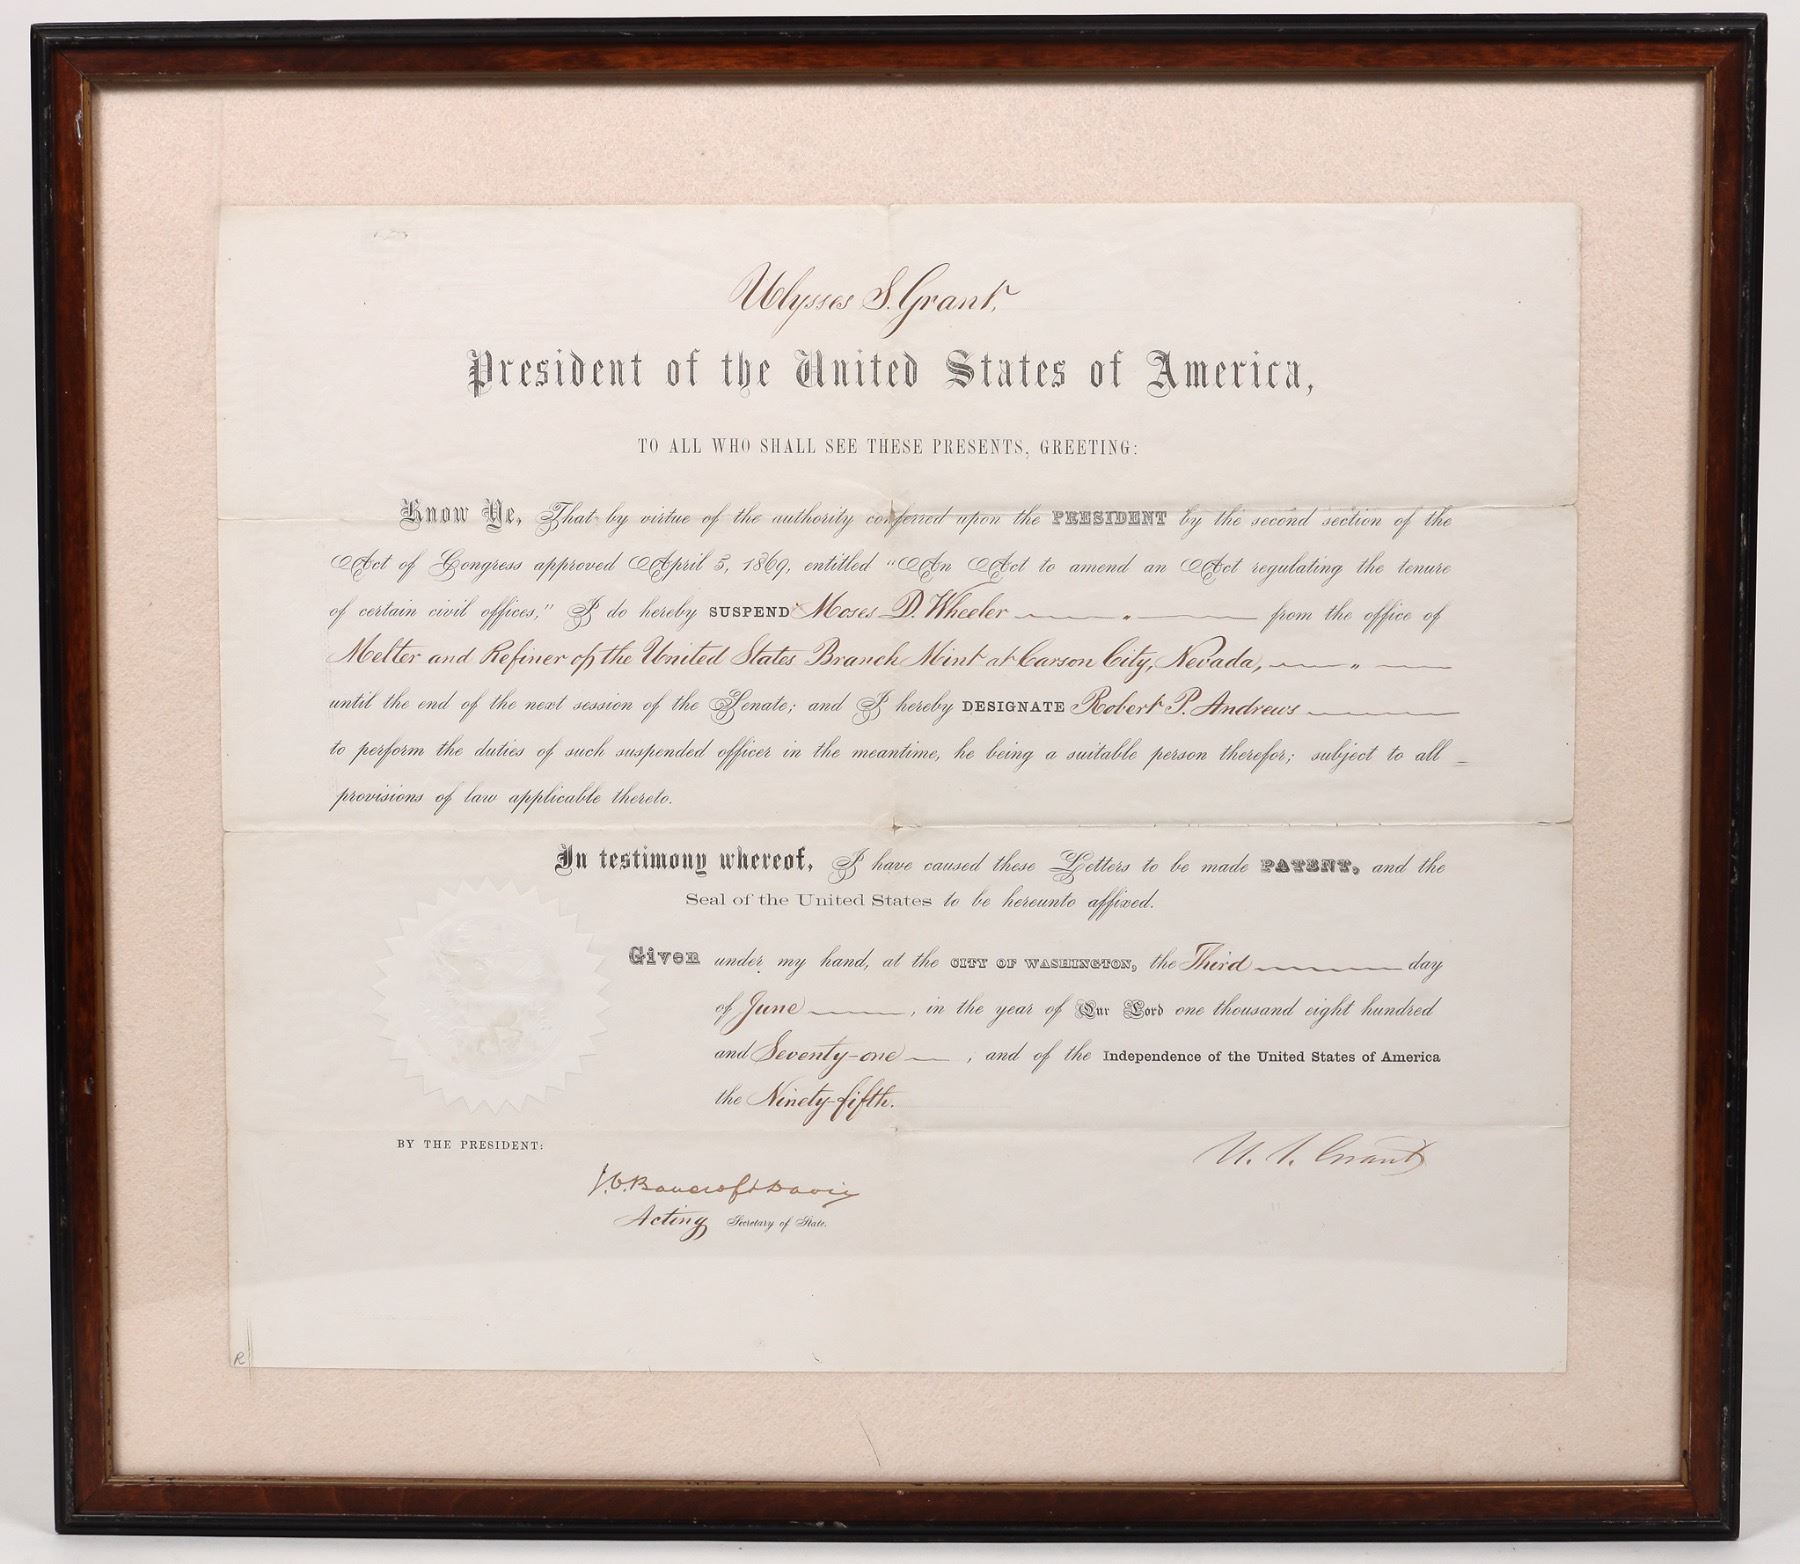 Ulysses S. Grant,
President of the United States of America,
TO ALL WHO SHALL SEE THESE PRESENTS, GREETING:
Know Ye, That by virtue of the authority conferred upon the PRESIDENT by the second section of the
Act of Congress approved April 5, 1869, entitled "An Act to amend an Act regulating the tenure
of certain civil offices," I do hereby SUSPEND Moses D. Wheeler from the office of
Melter and Refiner of the United States Branch Mint at Carson City, Nevada,
until the end of the next session of the Senate; and I hereby DESIGNATE Robert P. Andrews
to perform the duties of such suspended officer in the meantime, he being a suitable person therefor; subject to all
provisions of law applicable thereto.
In testimony whereof, I have caused these Letters to be made PATENT, and the
Seal of the United States to be hereunto affixed.
Given under my hand, at the CITY OF WASHINGTON, the Third day
of June, in the year of Our Lord one thousand eight hundred
and Seventy-one, and of the Independence of the United States of America
the Ninety-fifth.
BY THE PRESIDENT:
U. S. Grant
J. C. Bancroft Davis
Acting Secretary of State.
R